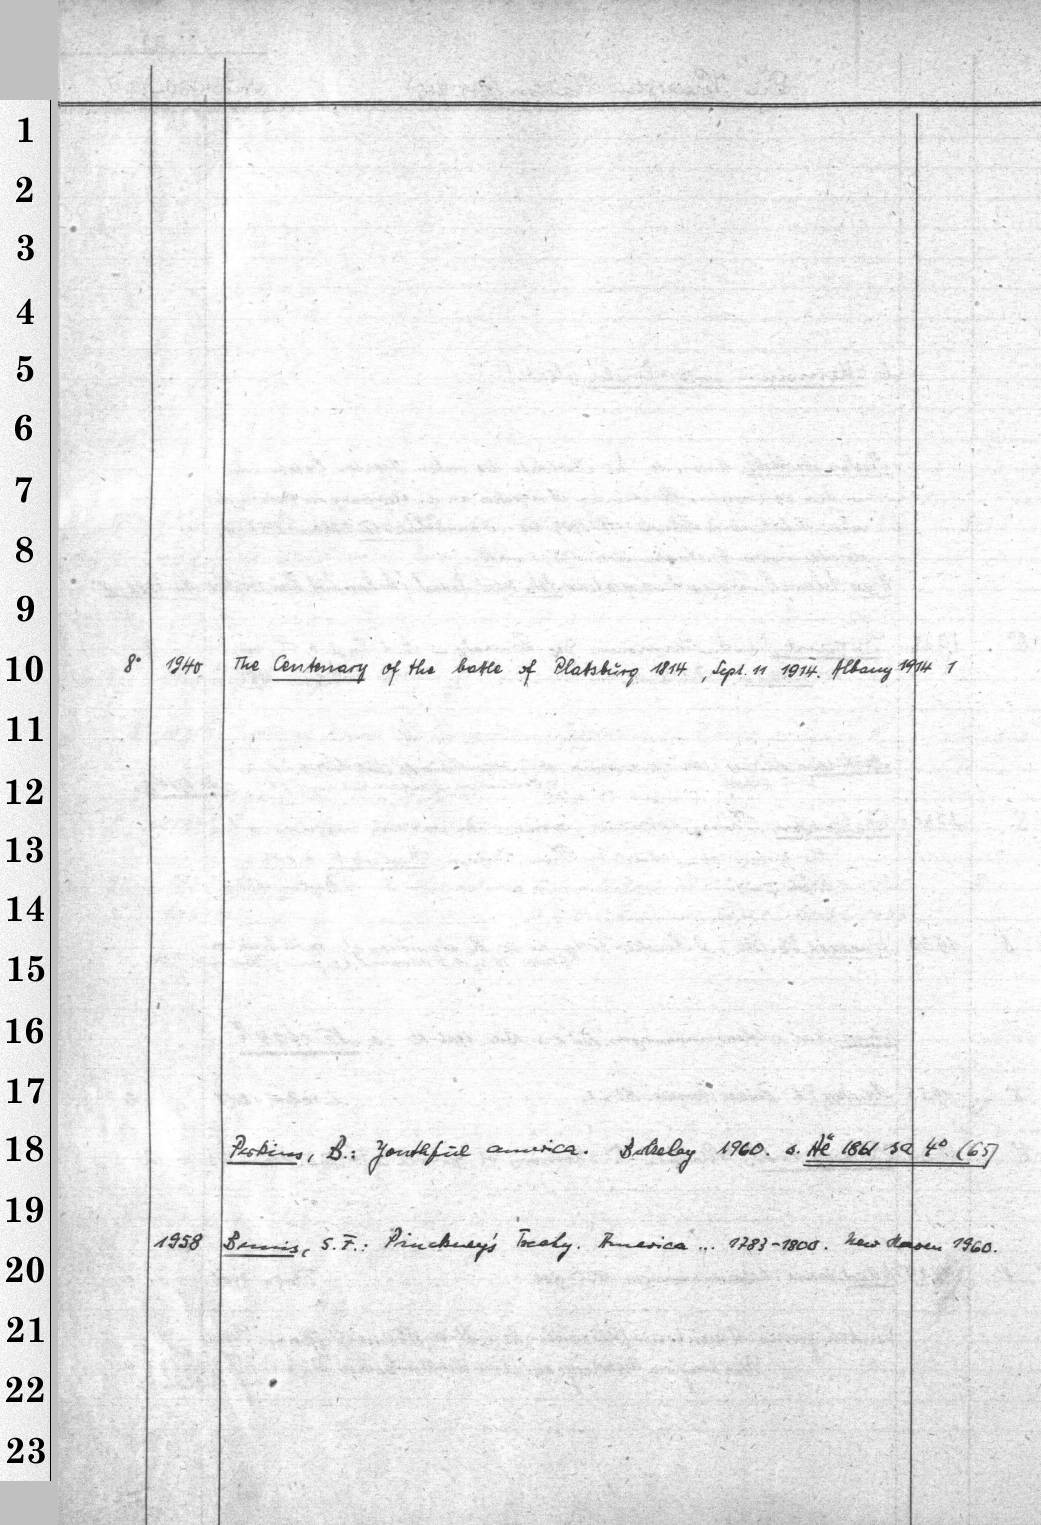 1
2
3
4
5
6
7
8
9
8° 1940 The Centenary of the batle of Platsburg 1814, Sept. 11 1914. Albany 1914 1
10
11
12
13
14
15
16
17
Perkins, B.: Youthful america. Berkeley 1960. s. 1861 4° (65)
18
19
1958 Bemis, S. F.: Pinckney's Treaty. America ... 1783-1800. New Haven 1960.
20
21
22
23